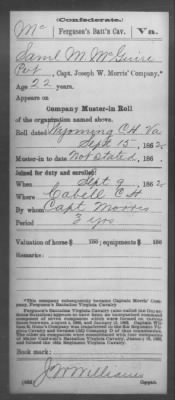 (Confederate.)
Mc Ferguson's Batt'n Cav. Va.
Saml M. McGuire
Pvt, Capt. Joseph W. Morris' Company.*
Age 22 years.
Appears on
Company Muster-in Roll
of the organization named above.
Roll dated Wyoming C.H. Va
Sept 15, 1862
Muster-in to date Not stated, 186
Joined for duty and enrolled:
When Sept 9, 1862
Where Cabell C.H.
By whom Capt. Morris
Period 3 yrs
Valuation of horse $ 100; equipments $ 100
Remarks:
*This company subsequently became Captain Morris' Company, Ferguson's Battalion Virginia Cavalry.
Book mark:
J. W. Williams
Copyist.